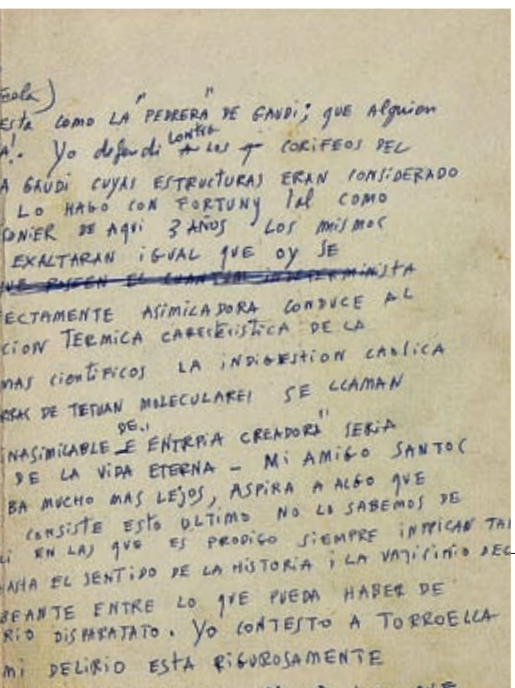 Eola)
Esta COMO LA "PEDRERA" DE GAUDI; QUE Alguien
A! Yo defendi CONTRA A LOS CORIFEOS DEL
A GAUDI CUYAS ESTRUCTURAS ERAN CONSIDERADO
LO HAGO CON FORTUNY Tal COMO
SONIER DE AQUI 3 AÑOS LOS MISMOS
EXALTARAN iGUAL QUE OY SE
UE POSEEN EL CUANTUM INDETERMINISTA
ECTAMENTE ASiMiLADORA CONDUCE AL
CION TERMICA CARECTERISTICA DE LA
MAS CIENTIFICOS LA iNDiGESTION CAOLICA
RRAS DE TETUAN MOLECULARES SE LLAMAN
INASIMILABLE E DE,, ENTRPIA CREADORA" SERIA
DE LA VIDA ETERNA - Mi AMIGO SANTOS
BA MUCHO MAS LEJOS, ASPIRA A ALGO QUE
CONSISTE ESTO ULTIMO NO LO SABEMOS DE
Li EN LAS QUE ES PRODIGO SIEMPRE IMPLICAN TAL
HASTA EL SENTIDO DE LA HISTORIA i LA VATICINIO DEL
BEANTE ENTRE LO QUE PUEDA HABER DE
RIO DISPARATATO. YO CONTESTO A TORROELLA
Mi DELIRIO ESTA RIGUROSAMENTE
QUE